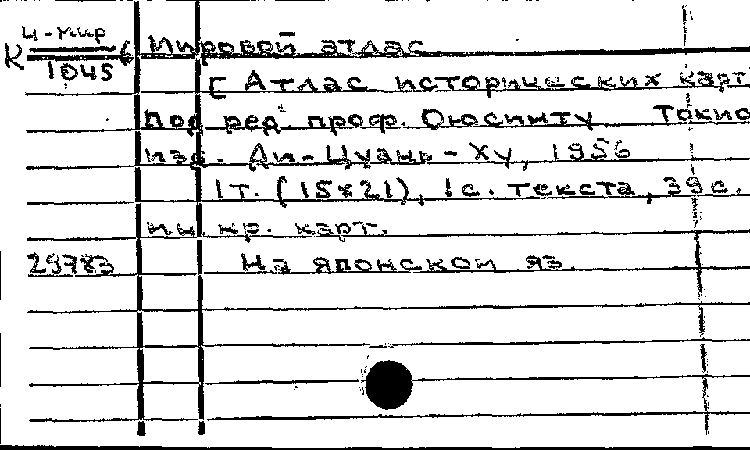 Ц-мир
К 1045 6 Мировой атлас
[Атлас исторических карт
под ред. проф. Оюсимту Токио
изд. Ди-Цуань-Ху, 1956
1т. (15*21), 1с. текста, 39с.
ин. кр. карт.
29783 На японском яз.